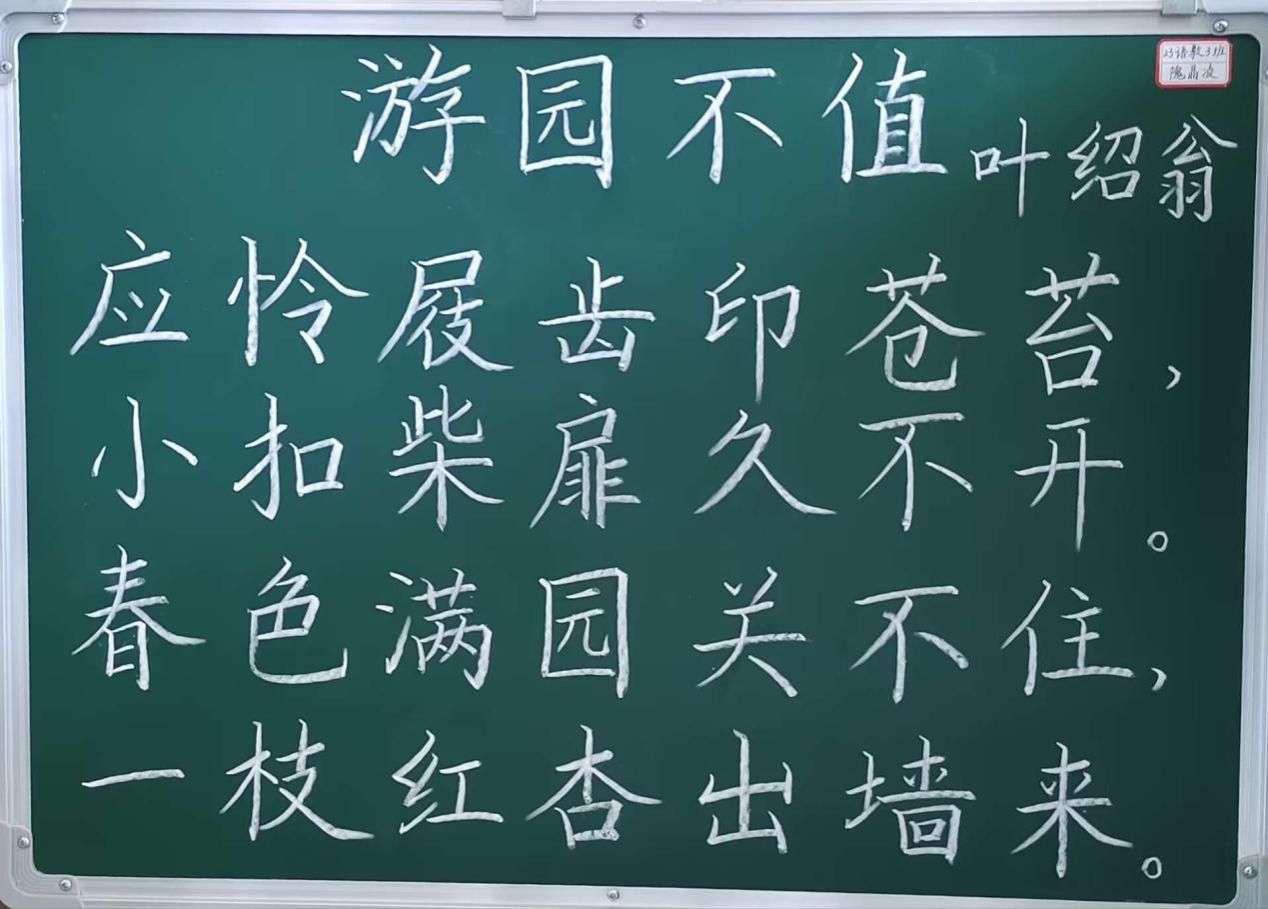 游园不值
叶绍翁
23语教3班
隗晶波
应怜屐齿印苍苔,
小扣柴扉久不开。
春色满园关不住,
一枝红杏出墙来。